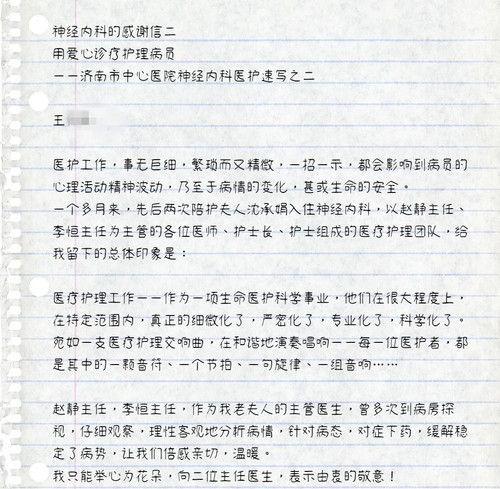 神经内科的感谢信二
用爱心诊疗护理病员
——济南市中心医院神经内科医护速写之二
王
医护工作，事无巨细，繁琐而又精微，一招一示，都会影响到病员的
心理活动精神波动，乃至于病情的变化，甚或生命的安全。
一个多月来，先后两次陪护夫人沈承娟入住神经内科，以赵静主任、
李恒主任为主管的各位医师、护士长、护士组成的医疗护理团队，给
我留下的总体印象是：
医疗护理工作——作为一项生命医护科学事业，他们在很大程度上，
在特定范围内，真正的细微化了，严密化了，专业化了，科学化了。
宛如一支医疗护理交响曲，在和谐地演奏唱响——每一位医护者，都
是其中的一颗音符、一个节拍、一句旋律、一组音响……
赵静主任，李恒主任，作为我老夫人的主管医生，曾多次到病房探
视，仔细观察，理性客观地分析病情，针对病态，对症下药，缓解稳定
了病势，让我们倍感亲切，温暖。
我只能举心为花朵，向二位主任医生，表示由衷的敬意！